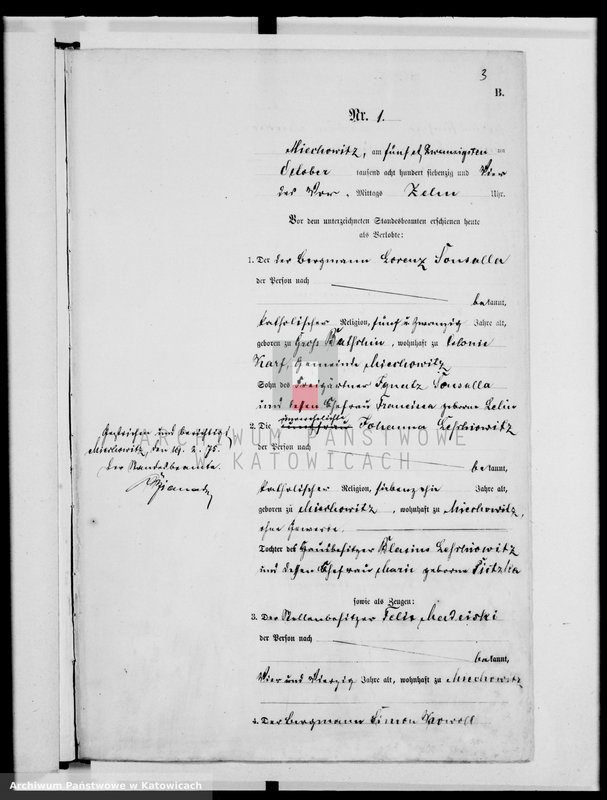 3
B.
Nr. 1.
Miechowitz, am fünf u. zwanzigsten ten
October tausend acht hundert siebenzig und Vier
des Vor- Mittags Zehn Uhr.
Vor dem unterzeichneten Standesbeamten erschienen heute
als Verlobte:
1. Der der Bergmann Lorenz Tonsalla
der Person nach
bekannt,
katholischer Religion, fünf u zwanzig Jahre alt,
geboren zu Groß, wohnhaft zu Colonie
Karf, Gemeinde Miechowitz
Sohn des Freigärtner Ignatz Tonsalla
und dessen Ehefrau Francisca geborne
2. Die unverehelichte Jungfrau Johanna
der Person nach
bekannt,
katholischer Religion, siebenzehn Jahre alt,
geboren zu Miechowitz, wohnhaft zu Miechowitz,
ohne Gewerbe.
Tochter des Hausbesitzer
und dessen Ehefrau Marie geborne
sowie als Zeugen:
3. Der Stellenbesitzer Felix
der Person nach
bekannt,
Vier und Vierzig Jahre alt, wohnhaft zu Miechowitz
4. Der Bergmann Simon
Gestrichen und berichtigt
Miechowitz, den 14. 2. 75.
Der Standesbeamte.
ARCHIWUM PAŃSTWOWE
W KATOWICACH
Archiwum Państwowe w Katowicach